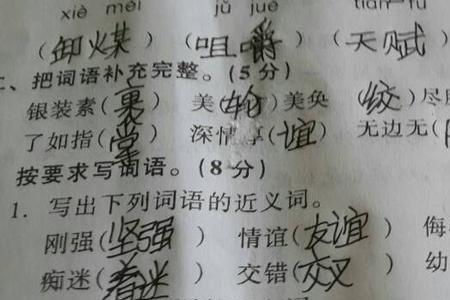 xiè méi jǔ jué tiān fù
(卸煤) (咀嚼) (天赋)
、把词语补充完整。(5分)
银装素(裹) 美(轮)美奂 (绞)尽
了如指(掌) 深情厚(谊) 无边无(
按要求写词语。(8分)
1. 写出下列词语的近义词。
刚强(坚强) 情谊(友谊) 侮
痴迷(着迷) 交错(交叉) 幼